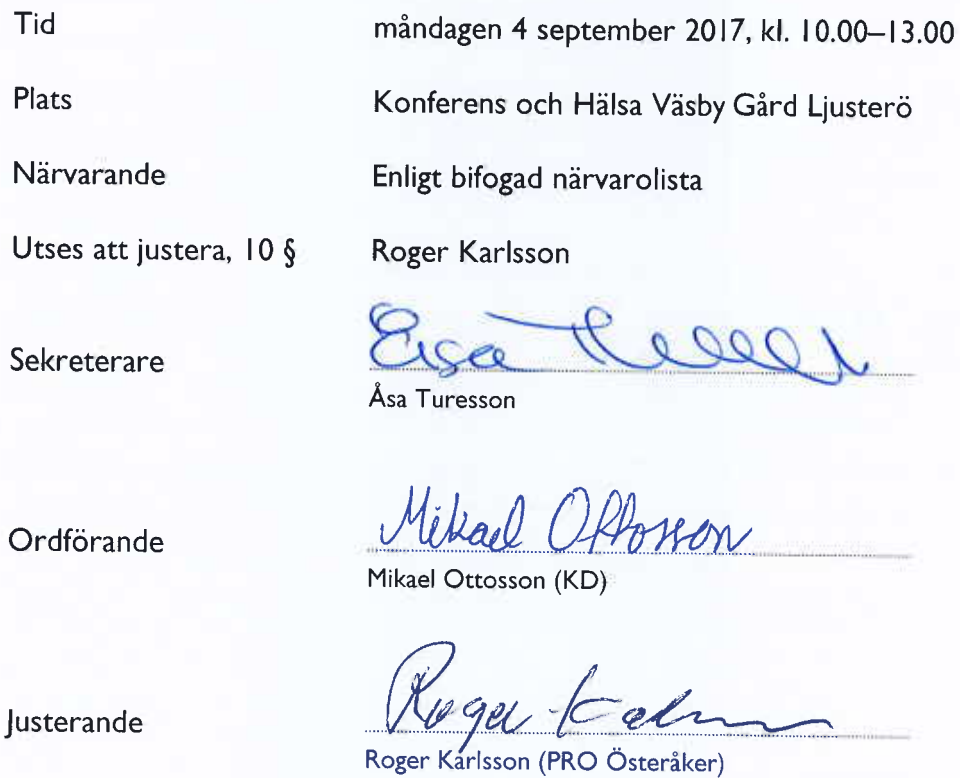 Tid måndagen 4 september 2017, kl. 10.00–13.00
Plats Konferens och Hälsa Väsby Gård Ljusterö
Närvarande Enligt bifogad närvarolista
Utses att justera, 10 § Roger Karlsson
Sekreterare
Åsa Turesson
Mikael Ottosson
Ordförande
Mikael Ottosson (KD)
Roger
Justerande
Roger Karlsson (PRO Österåker)